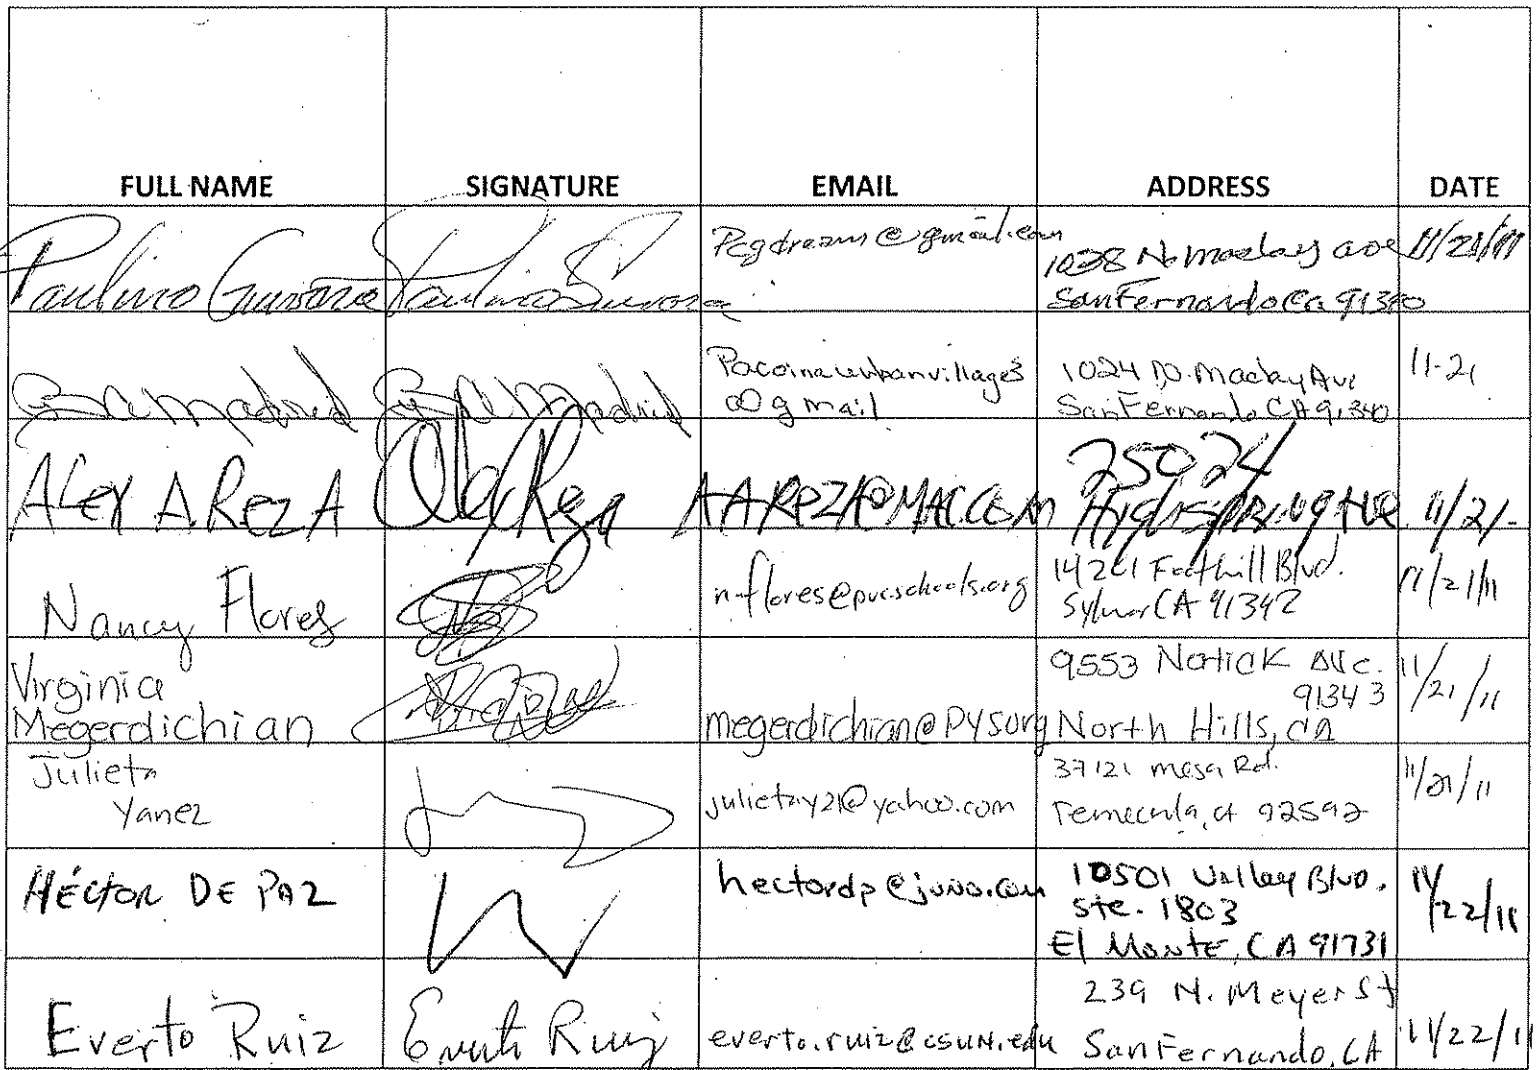 FULL NAME SIGNATURE EMAIL ADDRESS DATE
Paulino Paulino
Pcgdreams@gmail.com
1038 N. Maclay ave 11/21/11
San Fernando Ca 91340
Madrid Madrid
Pacoimaurbanvillage3
@gmail
1024 N. Maclay Ave
San Fernando CA 91340
11-21
ALEX A. REZA Alex Reza AAREZA@MAC.COM
25024
Highspring Ave 11/21/-
Nancy Flores
n.flores@pucschools.org
14261 Foothill Blvd.
Sylmar CA 91342
11/21/11
Virginia
Megerdichian
megerdichian@PYS.org
9553 Natick Ave.
91343
North Hills, CA
11/21/11
Julieta
Yanez
julietay21@yahoo.com
37121 mesa Rd.
Temecula, CA 92592
11/21/11
HÉCTOR DE PAZ
hectordp@juno.com
10501 Valley Blvd.
Ste. 1803
El Monte, CA 91731
11/22/11
Everto Ruiz Everto Ruiz
everto.ruiz@csun.edu
239 N. Meyer St
San Fernando, CA
11/22/11